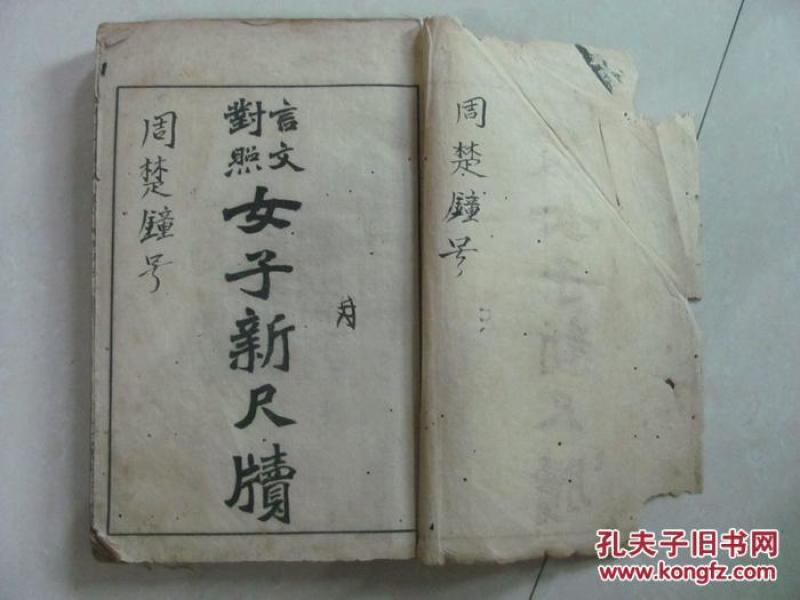 言文
對照
女子新尺牘
周楚鐘号
周楚鐘号
孔夫子旧书网
www.kongfz.com